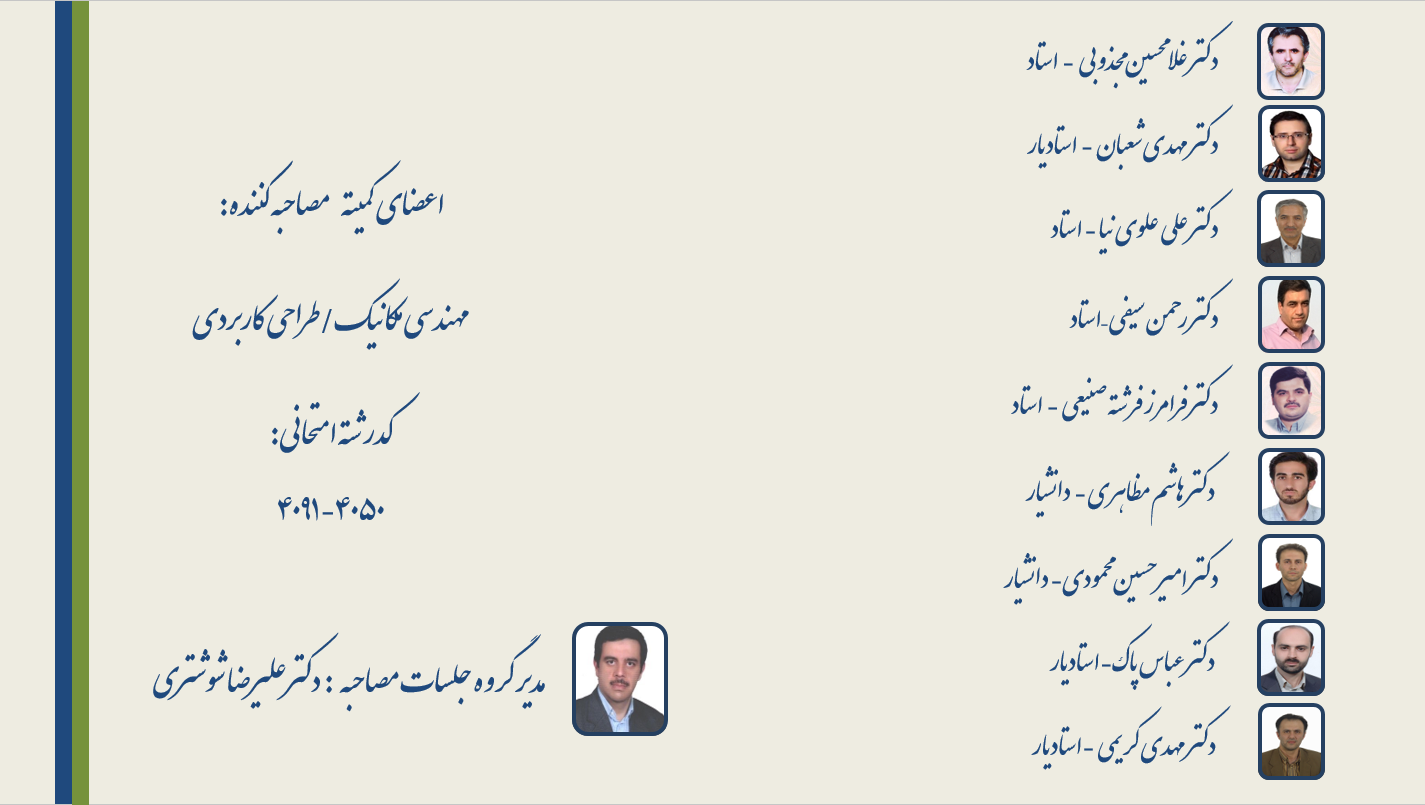 دکتر غلامحسین مجذوبی - استاد
دکتر مهدی شعبان - استادیار
دکتر علی علوی نیا - استاد
دکتر رحمن سیفی-استاد
دکتر فرامرز فرشته صنیعی - استاد
دکتر هاشم مظاهری - دانشیار
دکتر امیرحسین محمودی- دانشیار
دکتر عباس پاک- استادیار
دکتر مهدی کریمی - استادیار
اعضای کمیته مصاحبه کننده:
مهندسی مکانیک / طراحی کاربردی
کد رشته امتحانی:
۴۰۵۰-۴۰۹۱
مدیر گروه جلسات مصاحبه : دکتر علیرضا شوشتری